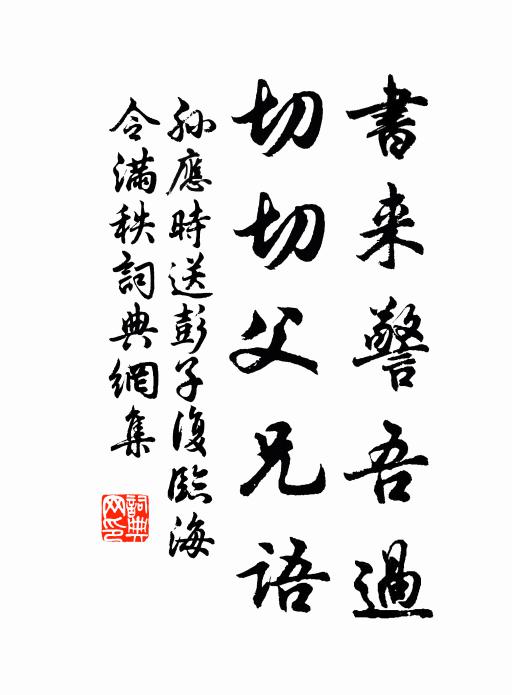 書来警吾過
切切父兄语
孙應時送彭子復臨海
令滿秩詞典網集
詞典
网印